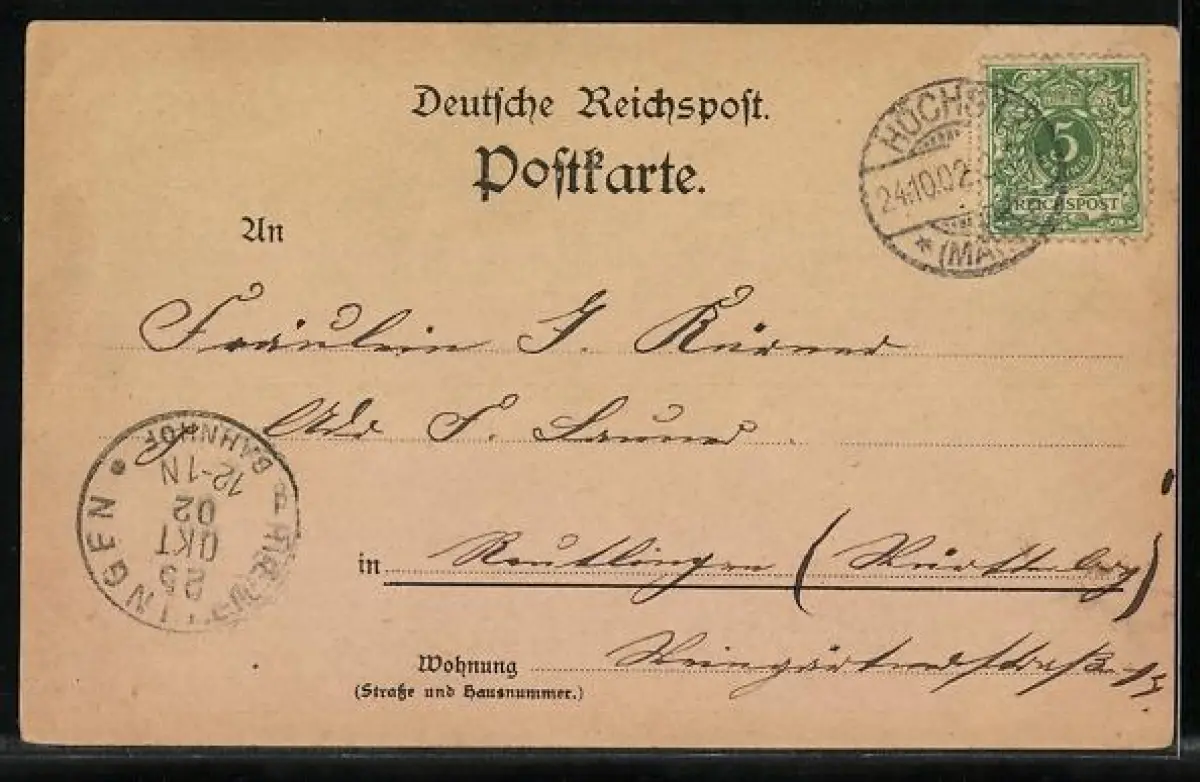 Deutsche Reichspost.
Postkarte.
HÖCHST
24.10.02
* (MAIN)
5
REICHSPOST
An
Fräulein J. Körner
Adr F.
in Reutlingen (Württbg)
Wohnung Weingärtnerstraße 15.
(Straße und Hausnummer.)
REUTLINGEN
BAHNHOF
25
OKT
02
12-1N